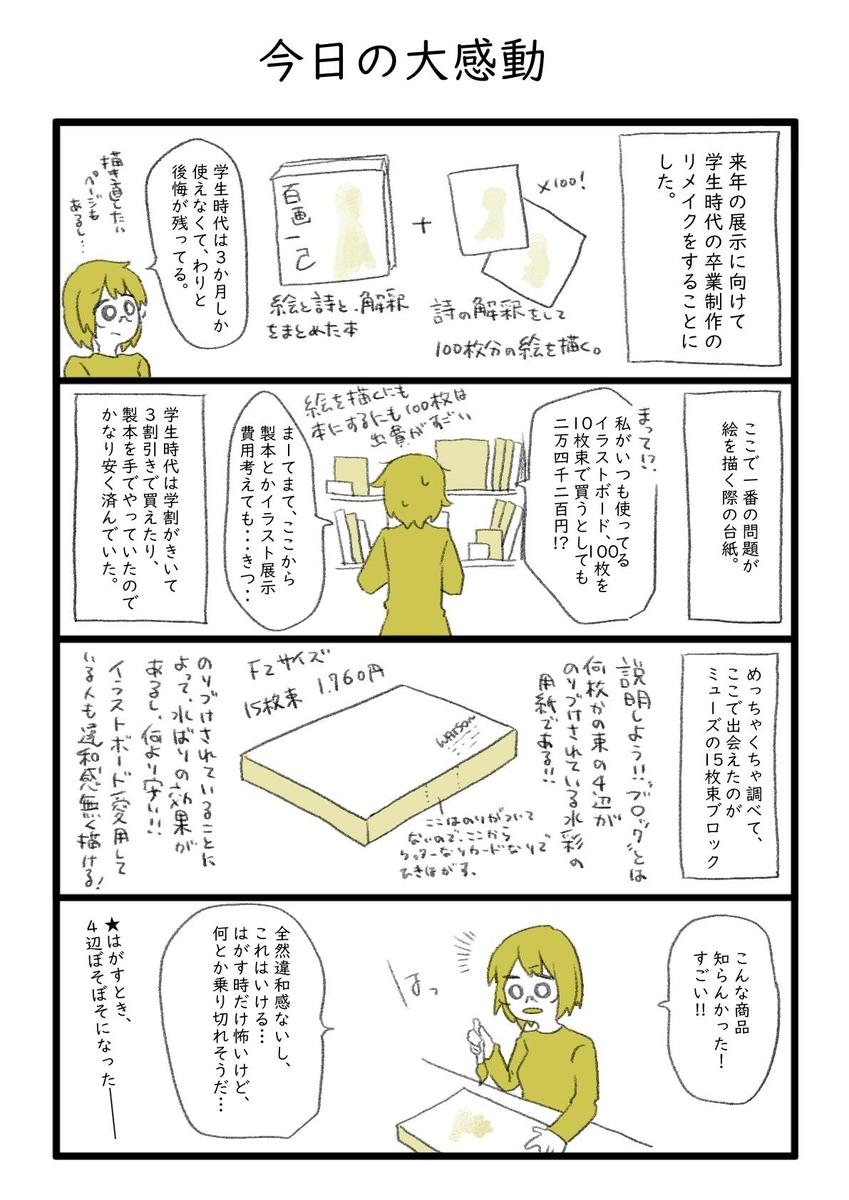 今日の大感動
来年の展示に向けて
学生時代の卒業制作の
リメイクをすることに
した。
×100!
詩の解釈をして
100枚分の絵を描く。
+
百画一己
絵と詩と、解釈
をまとめた本
学生時代は3か月しか
使えなくて、わりと
後悔が残ってる。
描き直したい
ページも
あるし…
ここで一番の問題が
絵を描く際の台紙。
まって!?
私がいつも使ってる
イラストボード、100枚を
10枚束で買うとしても
二万四千二百円!?
絵を描くにも
本にするにも100枚は
出費がすごい
まーてまて、ここから
製本とかイラスト展示
費用考えても・・・きつ・・
学生時代は学割がきいて
3割引きで買えたり、
製本を手でやっていたので
かなり安く済んでいた。
めっちゃくちゃ調べて、
ここで出会えたのが
ミューズの15枚束ブロック
説明しよう!!ブロックとは
何枚かの束の4辺が
のりづけされている水彩の
用紙である!!
F2サイズ
15枚束 1.760円
WATSON
ここはのりがついて
ないので、ここから
カッターなりカードなりで
ひきはがす。
のりづけされていることに
よって、水ばりの効果が
あるし、何より安い!!
イラストボード愛用して
いる人も違和感無く描ける!
こんな商品
知らんかった!
すごい!!
はっ
全然違和感ないし、
これはいける…
はがす時だけ怖いけど、
何とか乗り切れそうだ…
★はがすとき、
4辺ぼそぼそになった―――